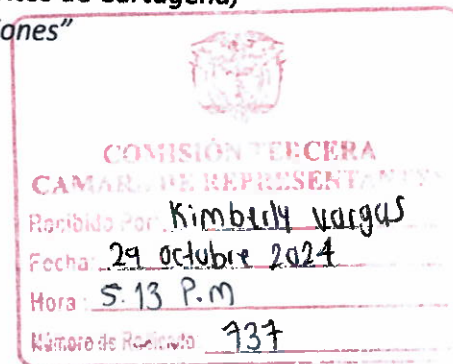 de Cartagena)
iones"
COMISIÓN TERCERA
CAMARA DE REPRESENTANTES
Recibido Por: Kimberly vargas
Fecha: 29 octubre 2024
Hora: 5:13 P.m
Número de Radicado: 737